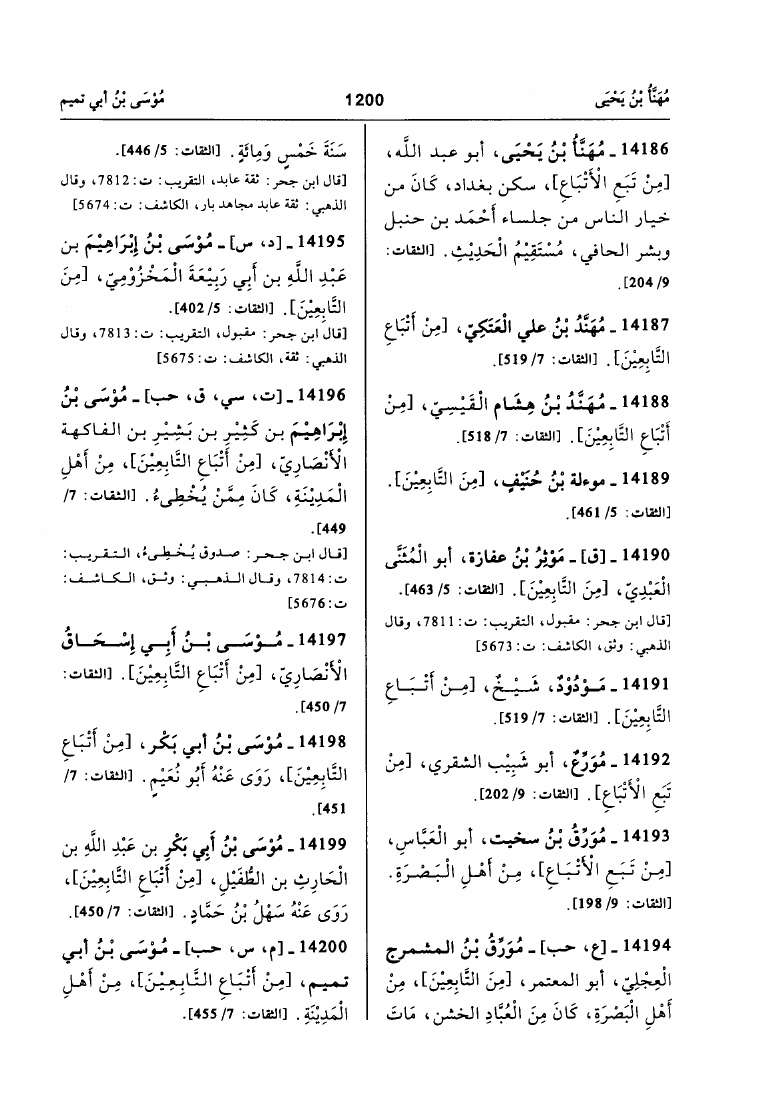 مُهَنَّأُ بْنُ يَحْيَى
1200
مُوْسَى بْنُ أبي تميم
14186 ـ مُهَنَّأُ بْنُ يَحْيَى، أبو عبد اللَّه،
[مِنْ تَبَعِ الأَتْبَاعِ]، سكن بغداد، كَانَ من
خيار الناس من جلساء أحْمَد بن حنبل
وبشر الحافي، مُسْتَقِيْمُ الْحَدِيْثِ. [الثقات:
204/9].
14187 ـ مُهَنَّدُ بْنُ علي الْعَتَكِيّ، [مِنْ أَتْبَاعِ
التَّابِعِيْنَ]. [الثقات: 519/7].
14188 ـ مُهَنَّدُ بْنُ هِشَام الْقَيْسِيّ، [مِنْ
أَتْبَاعِ التَّابِعِيْنَ]. [الثقات: 518/7].
14189 ـ موءلة بْنُ حُنَيْفٍ، [مِنَ التَّابِعِيْنَ].
[الثقات: 461/5].
14190 ـ [ق] ـ مَوْثِرُ بْنُ عفازة، أبو الْمُثَنَّى
الْعَبْدِيّ، [مِنَ التَّابِعِيْنَ]. [الثقات: 463/5].
[قال ابن حجر: مقبول، التقريب: ت:7811، وقال
الذهبي: وثق، الكاشف: ت:5673]
14191 ـ مَوْدُوْدٌ، شَيْخٌ، [مِنْ أَتْبَاعِ
التَّابِعِيْنَ]. [الثقات: 519/7].
14192 ـ مُوَرِّعٌ، أبو شَبِيْبٍ الشقري، [مِنْ
تَبَعِ الأَتْبَاعِ]. [الثقات: 202/9].
14193 ـ مُوَرِّقُ بْنُ سخيت، أبو الْعَبَّاسِ،
[مِنْ تَبَعِ الأَتْبَاعِ]، مِنْ أَهْلِ الْبَصْرَةِ.
[الثقات: 198/9].
14194 ـ [ع، حب] ـ مُوَرِّقُ بْنُ المشمرج
الْعِجْلِيّ، أبو المعتمر، [مِنَ التَّابِعِيْنَ]، مِنْ
أَهْلِ الْبَصْرَةِ، كَانَ مِنَ الْعُبَّادِ الخشن، مَاتَ
سَنَةَ خَمْسٍ وَمِائَةٍ. [الثقات: 446/5].
[قال ابن حجر: ثقة عابد، التقريب: ت:7812، وقال
الذهبي: ثقة عابد مجاهد بار، الكاشف: ت:5674]
14195 ـ [د، س] ـ مُوْسَى بْنُ إِبْرَاهِيْمَ بن
عَبْدِ اللَّهِ بن أَبي رَبِيْعَةَ الْمَخْزُوْمِيّ، [مِنَ
التَّابِعِيْنَ]. [الثقات: 402/5].
[قال ابن حجر: مقبول، التقريب: ت:7813، وقال
الذهبي: ثقة، الكاشف: ت:5675]
14196 ـ [ت، سي، ق، حب] ـ مُوْسَى بْنُ
إِبْرَاهِيْمَ بن كَثِيْرِ بن بَشِيْرِ بن الفاكهة
الأَنْصَارِيّ، [مِنْ أَتْبَاعِ التَّابِعِيْنَ]، مِنْ أَهْلِ
الْمَدِيْنَةِ، كَانَ مِمَّنْ يُخْطِيءُ. [الثقات: 7/
449].
[قال ابن حجر: صدوق يُخْطِيءُ، التقريب:
ت:7814، وقال الذهبي: وثق، الكاشف:
ت:5676]
14197 ـ مُوْسَى بْنُ أَبي إِسْحَاقَ
الأَنْصَارِيّ، [مِنْ أَتْبَاعِ التَّابِعِيْنَ]. [الثقات:
450/7].
14198 ـ مُوْسَى بْنُ أبي بَكْر، [مِنْ أَتْبَاعِ
التَّابِعِيْنَ]، رَوَى عَنْهُ أَبُو نُعَيْمٍ. [الثقات: 7/
451].
14199 ـ مُوْسَى بْنُ أَبِي بَكْرِ بن عَبْدِ اللَّهِ بن
الْحَارِثِ بن الطُّفَيْلِ، [مِنْ أَتْبَاعِ التَّابِعِيْنَ]،
رَوَى عَنْهُ سَهْلُ بْنُ حَمَّادٍ. [الثقات: 450/7].
14200 ـ [م، س، حب] ـ مُوْسَى بْنُ أَبي
تميم، [مِنْ أَتْبَاعِ التَّابِعِيْنَ]، مِنْ أَهْلِ
الْمَدِيْنَةِ. [الثقات: 455/7].